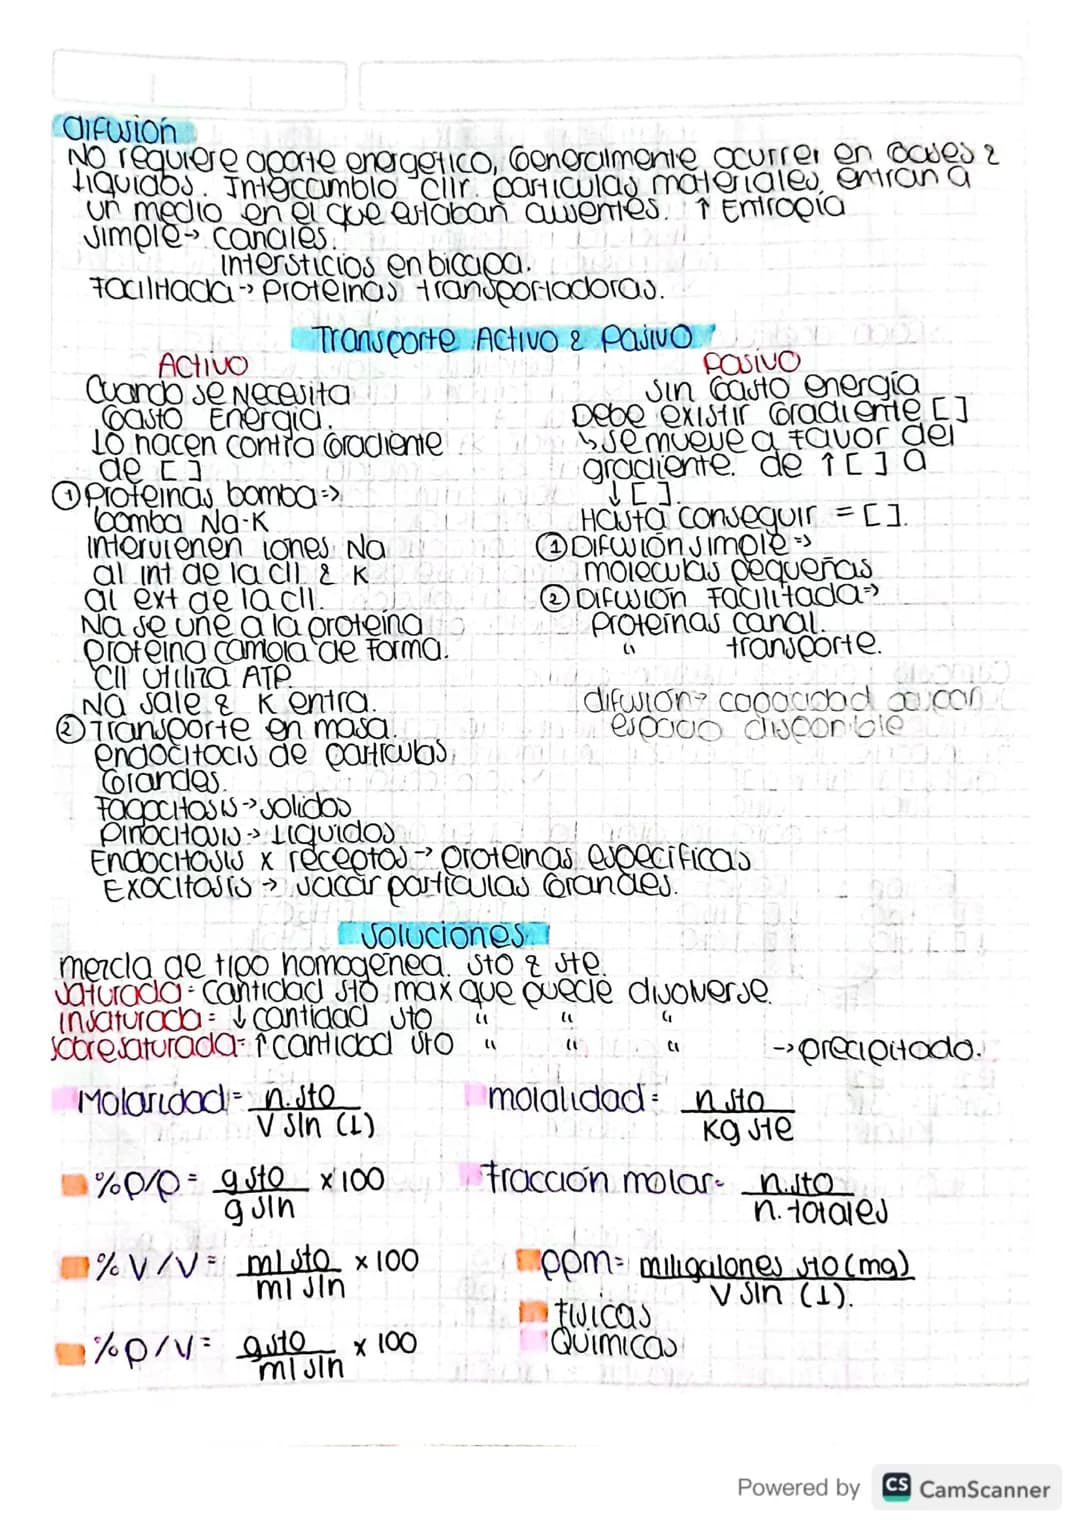 Difusión
No requiere aporte energetico, Generalmente ocurrer en Gases &
Liquidos. Intercambio Cllr. particulas materiales, entran a
un medio en el que estaban ausentes. ↑ Entropia
Simple → canales.
intersticios en bicapa.
Facilitada → Proteinas transportadoras.
Transporte Activo & Pasivo
Activo
Cuando se Necesita
Gasto Energia.
Lo hacen contra Gradiente
de [ ]
① Proteinas bomba =>
bomba Na-K
Intervienen iones Na
al int de la cll & K
al ext de la cll.
Na se une a la proteina
proteina cambia de Forma.
Cll utiliza ATP
Na sale & K entra.
② Transporte en masa.
endocitocis de particulas
Grandes.
Fagocitosis → solidos
Pinocitosis → Liquidos
Endocitosis x receptos → proteinas especificas
Exocitosis → saccar particulas Grandes.
Pasivo
Sin Gasto energía
Debe existir Gradiente [ ]
↳ se mueve a Favor del
gradiente. de ↑ [ ] a
↓ [ ].
Hasta conseguir = [ ].
① Difusión simple =>
moleculas pequeñas
② Difusión Facilitada =>
Proteinas canal.
" transporte.
difusión → capacidad
espacio disponible
Soluciones
mezcla de tipo homogenea. Sto & Ste.
Saturada = Cantidad Sto max que puede disolverse.
Insaturada = ↓ cantidad Sto " " "
Sobresaturada = ↑ cantidad Sto " " " → precipitado.
Molaridad = n. sto
V Sln (L)
molalidad = n sto
Kg Ste
% P/P = g sto x 100
g sln
Fracción molar = n. sto
n. totales
% V/V = ml sto x 100
ml sln
ppm = miligalones sto (mg)
V Sln (L).
% P/V = g sto x 100
ml sln
Fisicas
Quimicas
Powered by CS CamScanner